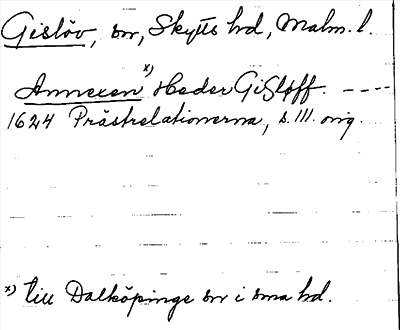 Gislöv, sn, Skytts hd, Malm. l.
Annexen x) Heder Gisløff. ----
1624 Prästrelationerna, s. 111. orig.
x) till Dalköpinge sn i sma hd.